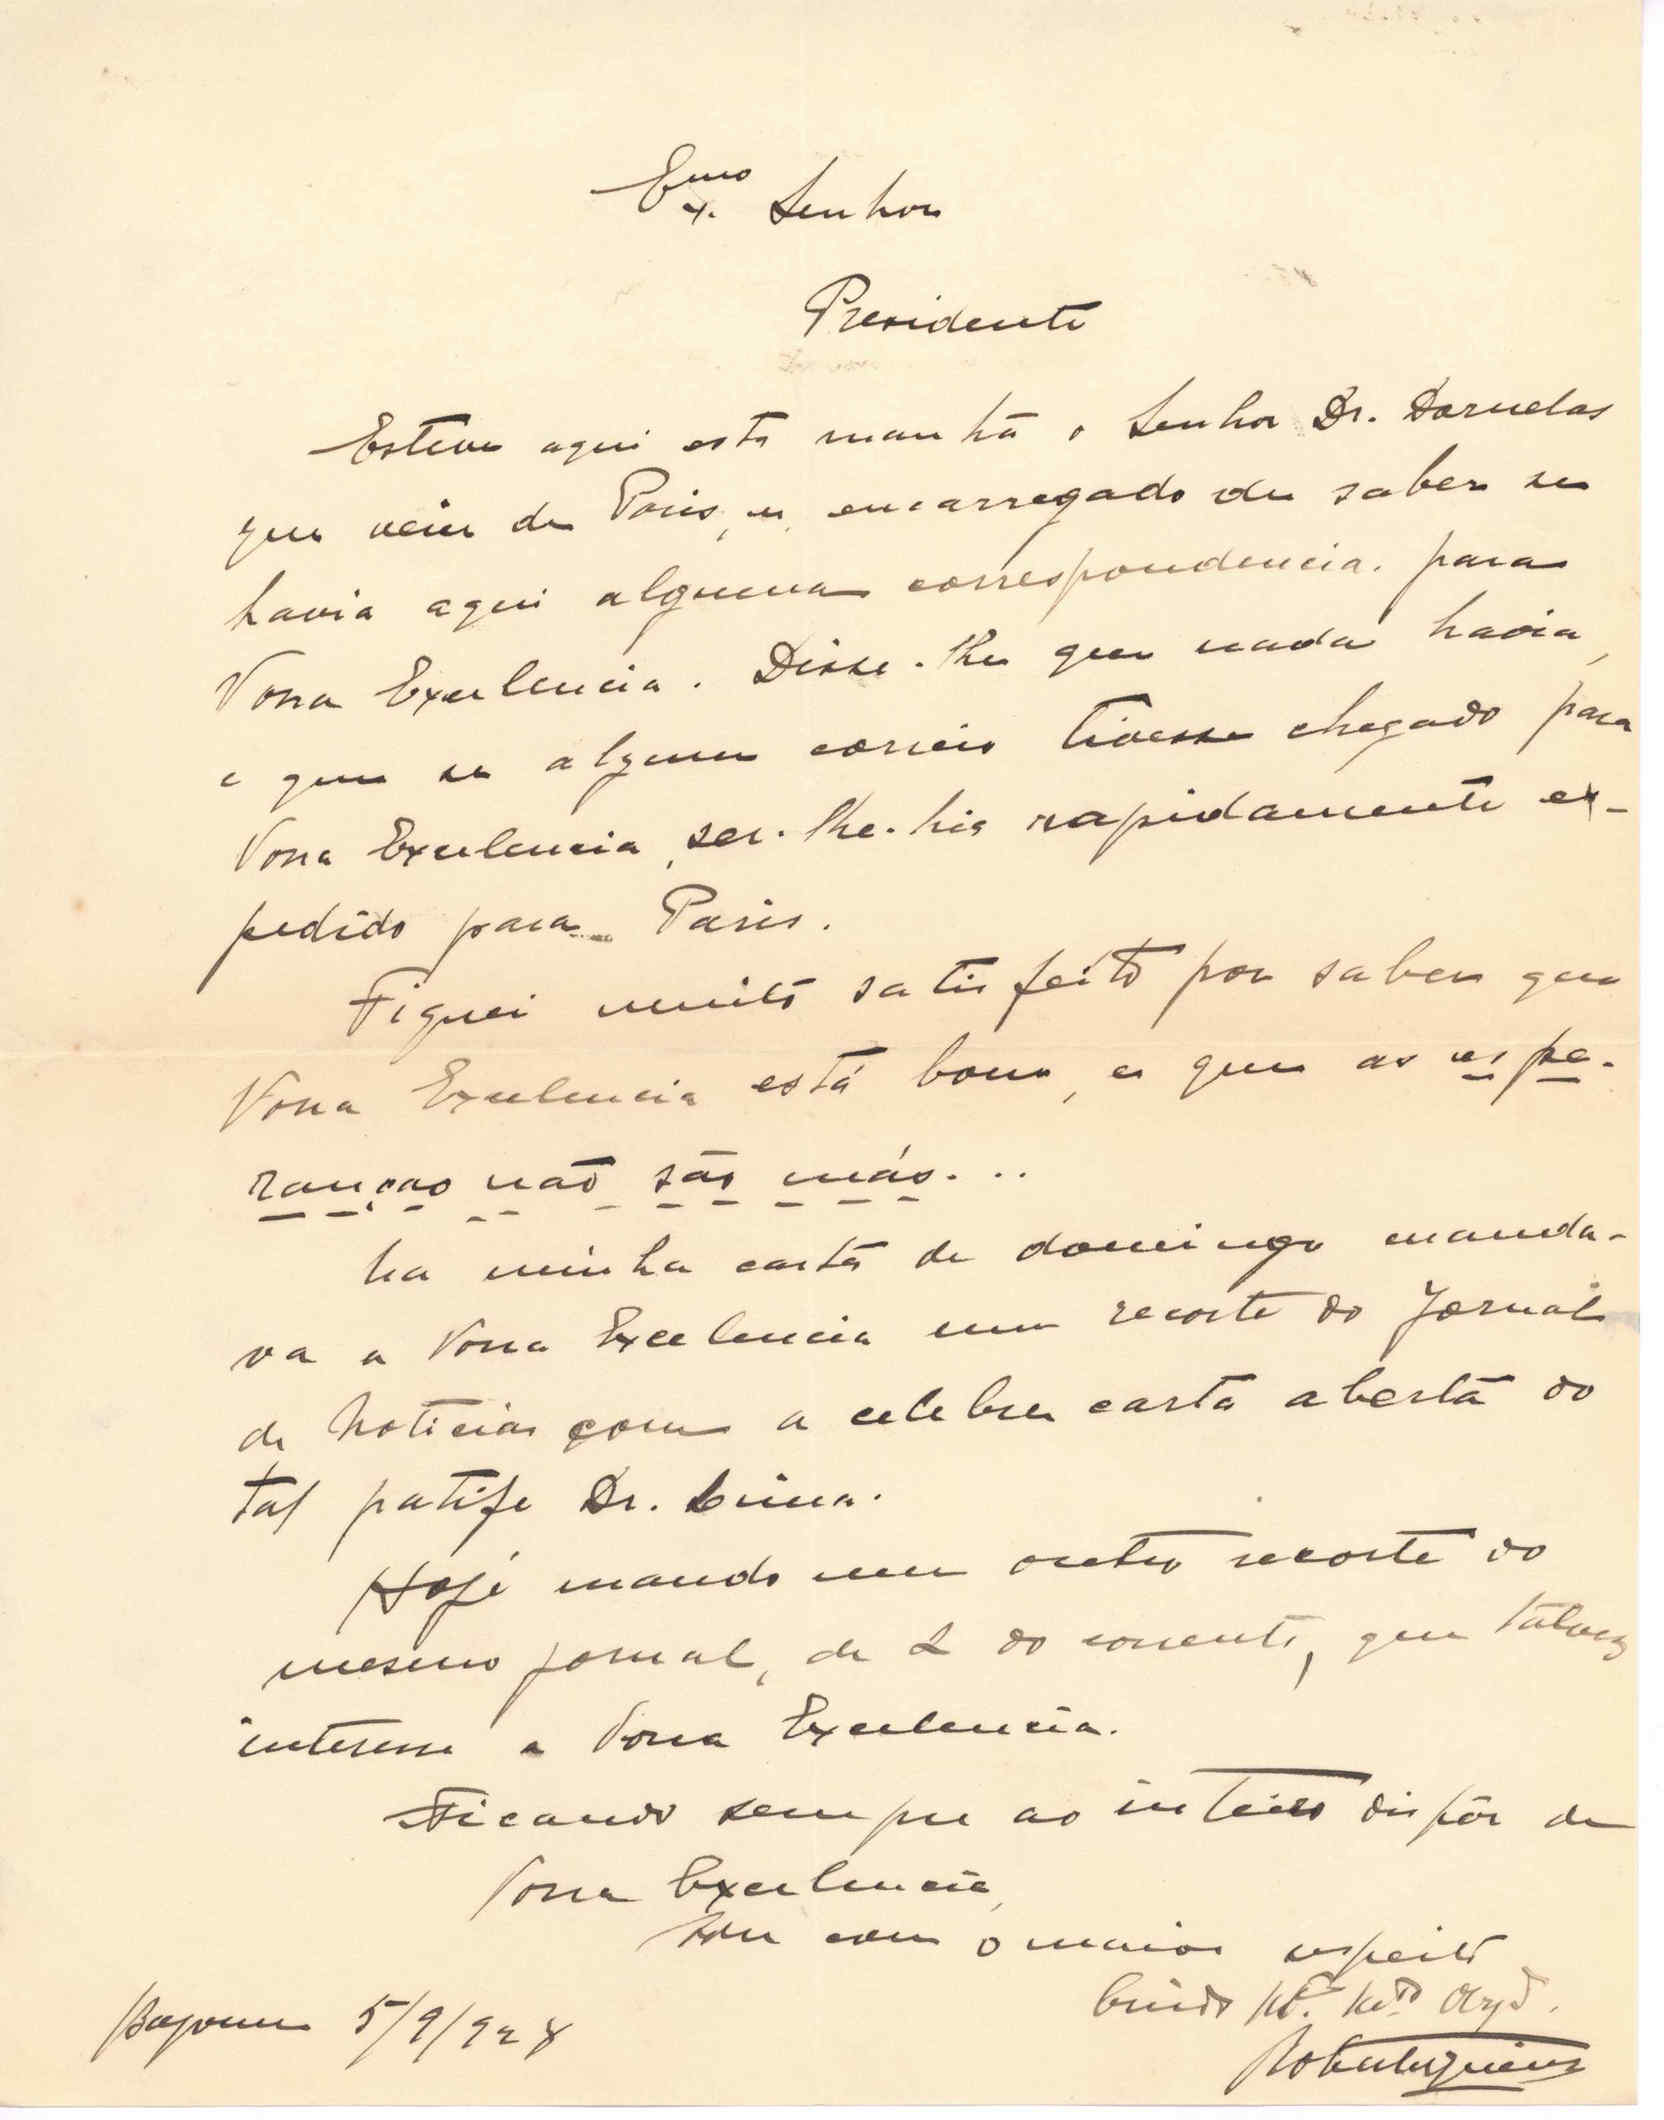 Exmo Senhor
Presidente
Esteve aqui esta manhã o Senhor Dr. Dornelas
que veiu de Paris, e, encarregado de saber se
havia aqui alguma correspondencia para
Vossa Excelencia. Disse-lhe que nada havia,
e que se algum correio tivesse chegado para
Vossa Excelencia, ser-lhe-hia rapidamente ex-
pedido para Paris.
Fiquei muito satisfeito por saber que
Vossa Excelencia está bom, e que as espe-
ranças não são más...
Na minha carta de domingo manda-
va a Vossa Excelencia um recorte do Jornal
de Noticias com a celebre carta aberta do
tal patife Dr. Lima.
Hoje mando um outro recorte do
mesmo jornal, de 2 do corrente, que talvez
interesse a Vossa Excelencia.
Ficando sempre ao inteiro dispôr de
Vossa Excelencia,
sou com o maior respeito
Criado
Bayonne 5/9/928